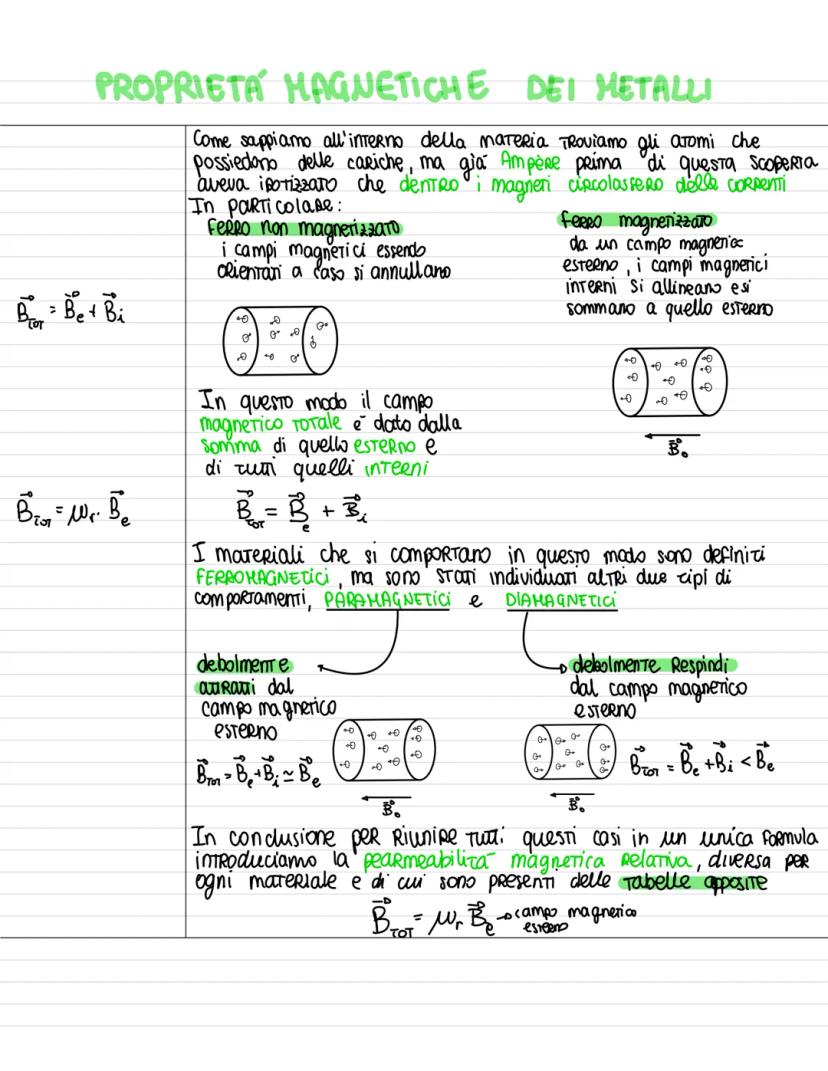 PROPRIETÁ MAGNETICHE DEI METALLI
Come sappiamo all'interno della materia troviamo gli atomi che
possiedono delle cariche, ma giá Ampère prima di questa scoperta
aveva ipotizzato che dentro i magneti circolassero delle correnti
In particolare:
Ferro non magnetizzato
i campi magnetici essendo
orientati a caso si annullano
Ferro magnetizzato
da un campo magnetico
esterno, i campi magnetici
interni si allineano e si
sommano a quello esterno
B⃗TOT = B⃗e + B⃗i
B⃗o
In questo modo il campo
magnetico totale é dato dalla
somma di quello esterno e
di tutti quelli interni
B⃗TOT = μr · B⃗e
B⃗TOT = B⃗e + B⃗i
I materiali che si comportano in questo modo sono definiti
FERROMAGNETICI, ma sono stati individuati altri due tipi di
comportamenti, PARAMAGNETICI e DIAMAGNETICI
debolmente
attratti dal
campo magnetico
esterno
B⃗TOT = B⃗e + B⃗i ≃ B⃗e
B⃗o
debolmente respindi
dal campo magnetico
esterno
B⃗TOT = B⃗e + B⃗i < B⃗e
B⃗o
In conclusione per riunire tutti questi casi in un unica formula
introduciamo la pearmeabilitá magnetica relativa, diversa per
ogni materiale e di cui sono presenti delle tabelle apposite
B⃗TOT = μr B⃗e → campo magnetico
esterno